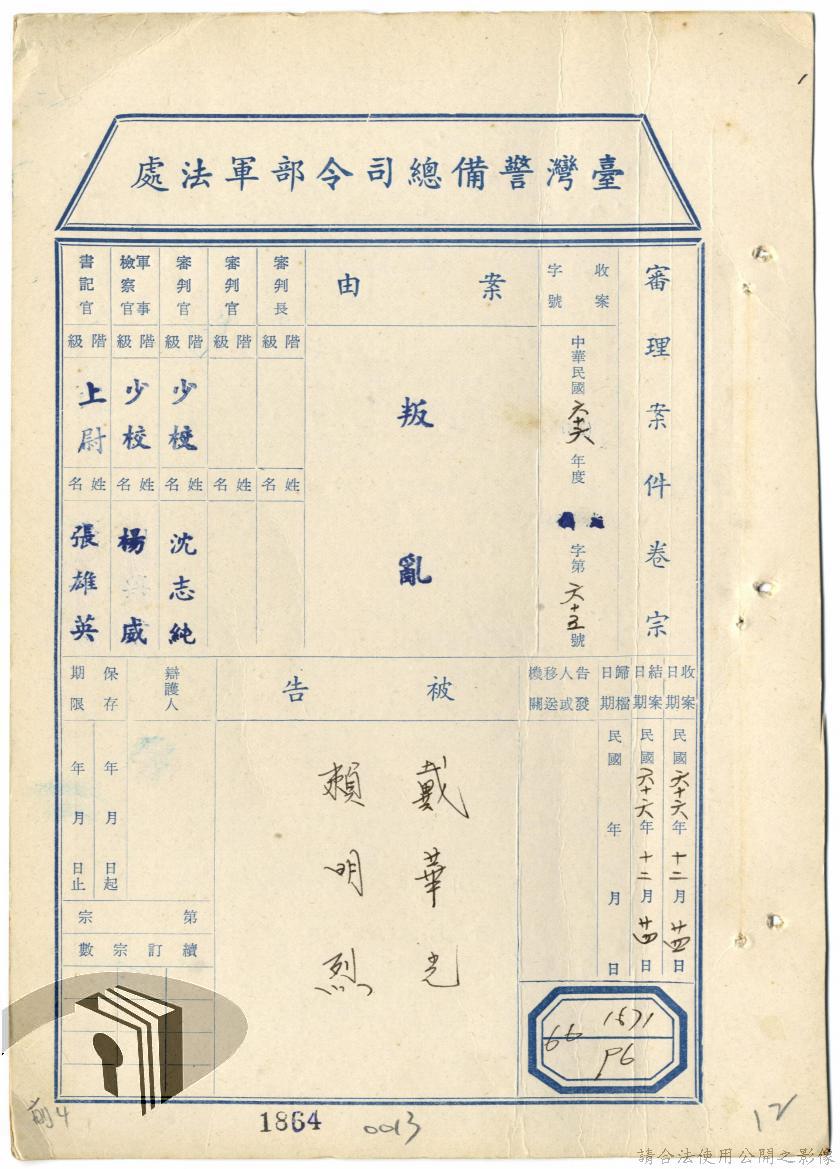 臺灣警備總司令部軍法處
審理案件卷宗
收案字號
中華民國六十六年度 字第六十五號
案由
叛亂
審判長
階級
姓名
審判官
階級
姓名
審判官
階級
少校
姓名
沈志純
軍事檢察官
階級
少校
姓名
楊 威
書記官
階級
上尉
姓名
張雄英
收案日期
民國六十六年十二月廿四日
結案日期
民國六十六年十二月廿四日
歸檔日期
民國 年 月 日
告發人或移送機關
被告
戴華光
賴明烈
辯護人
保存期限
年 月 日起
年 月 日止
第 宗
續訂宗數
66 1571
P6
1864
0013
12
請合法使用公開之影像